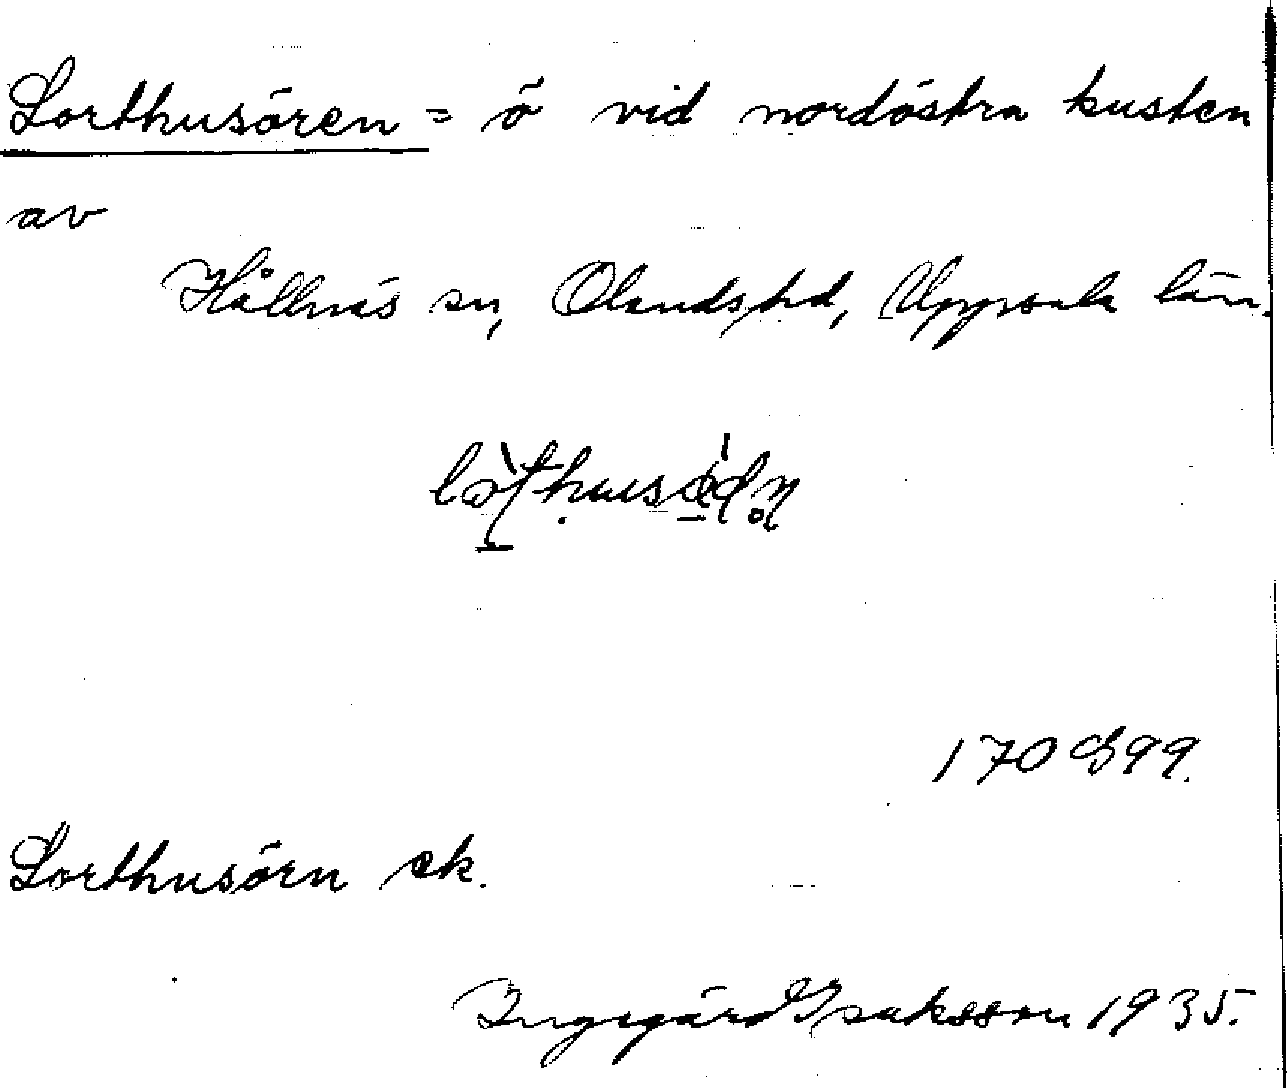 Lorthusören = ö vid nordöstra kusten
av
Hållnäs sn, Olands hd, Uppsala län.
170 99.
Lorthusörn ek.
Ingegärd Isaksson 1935.